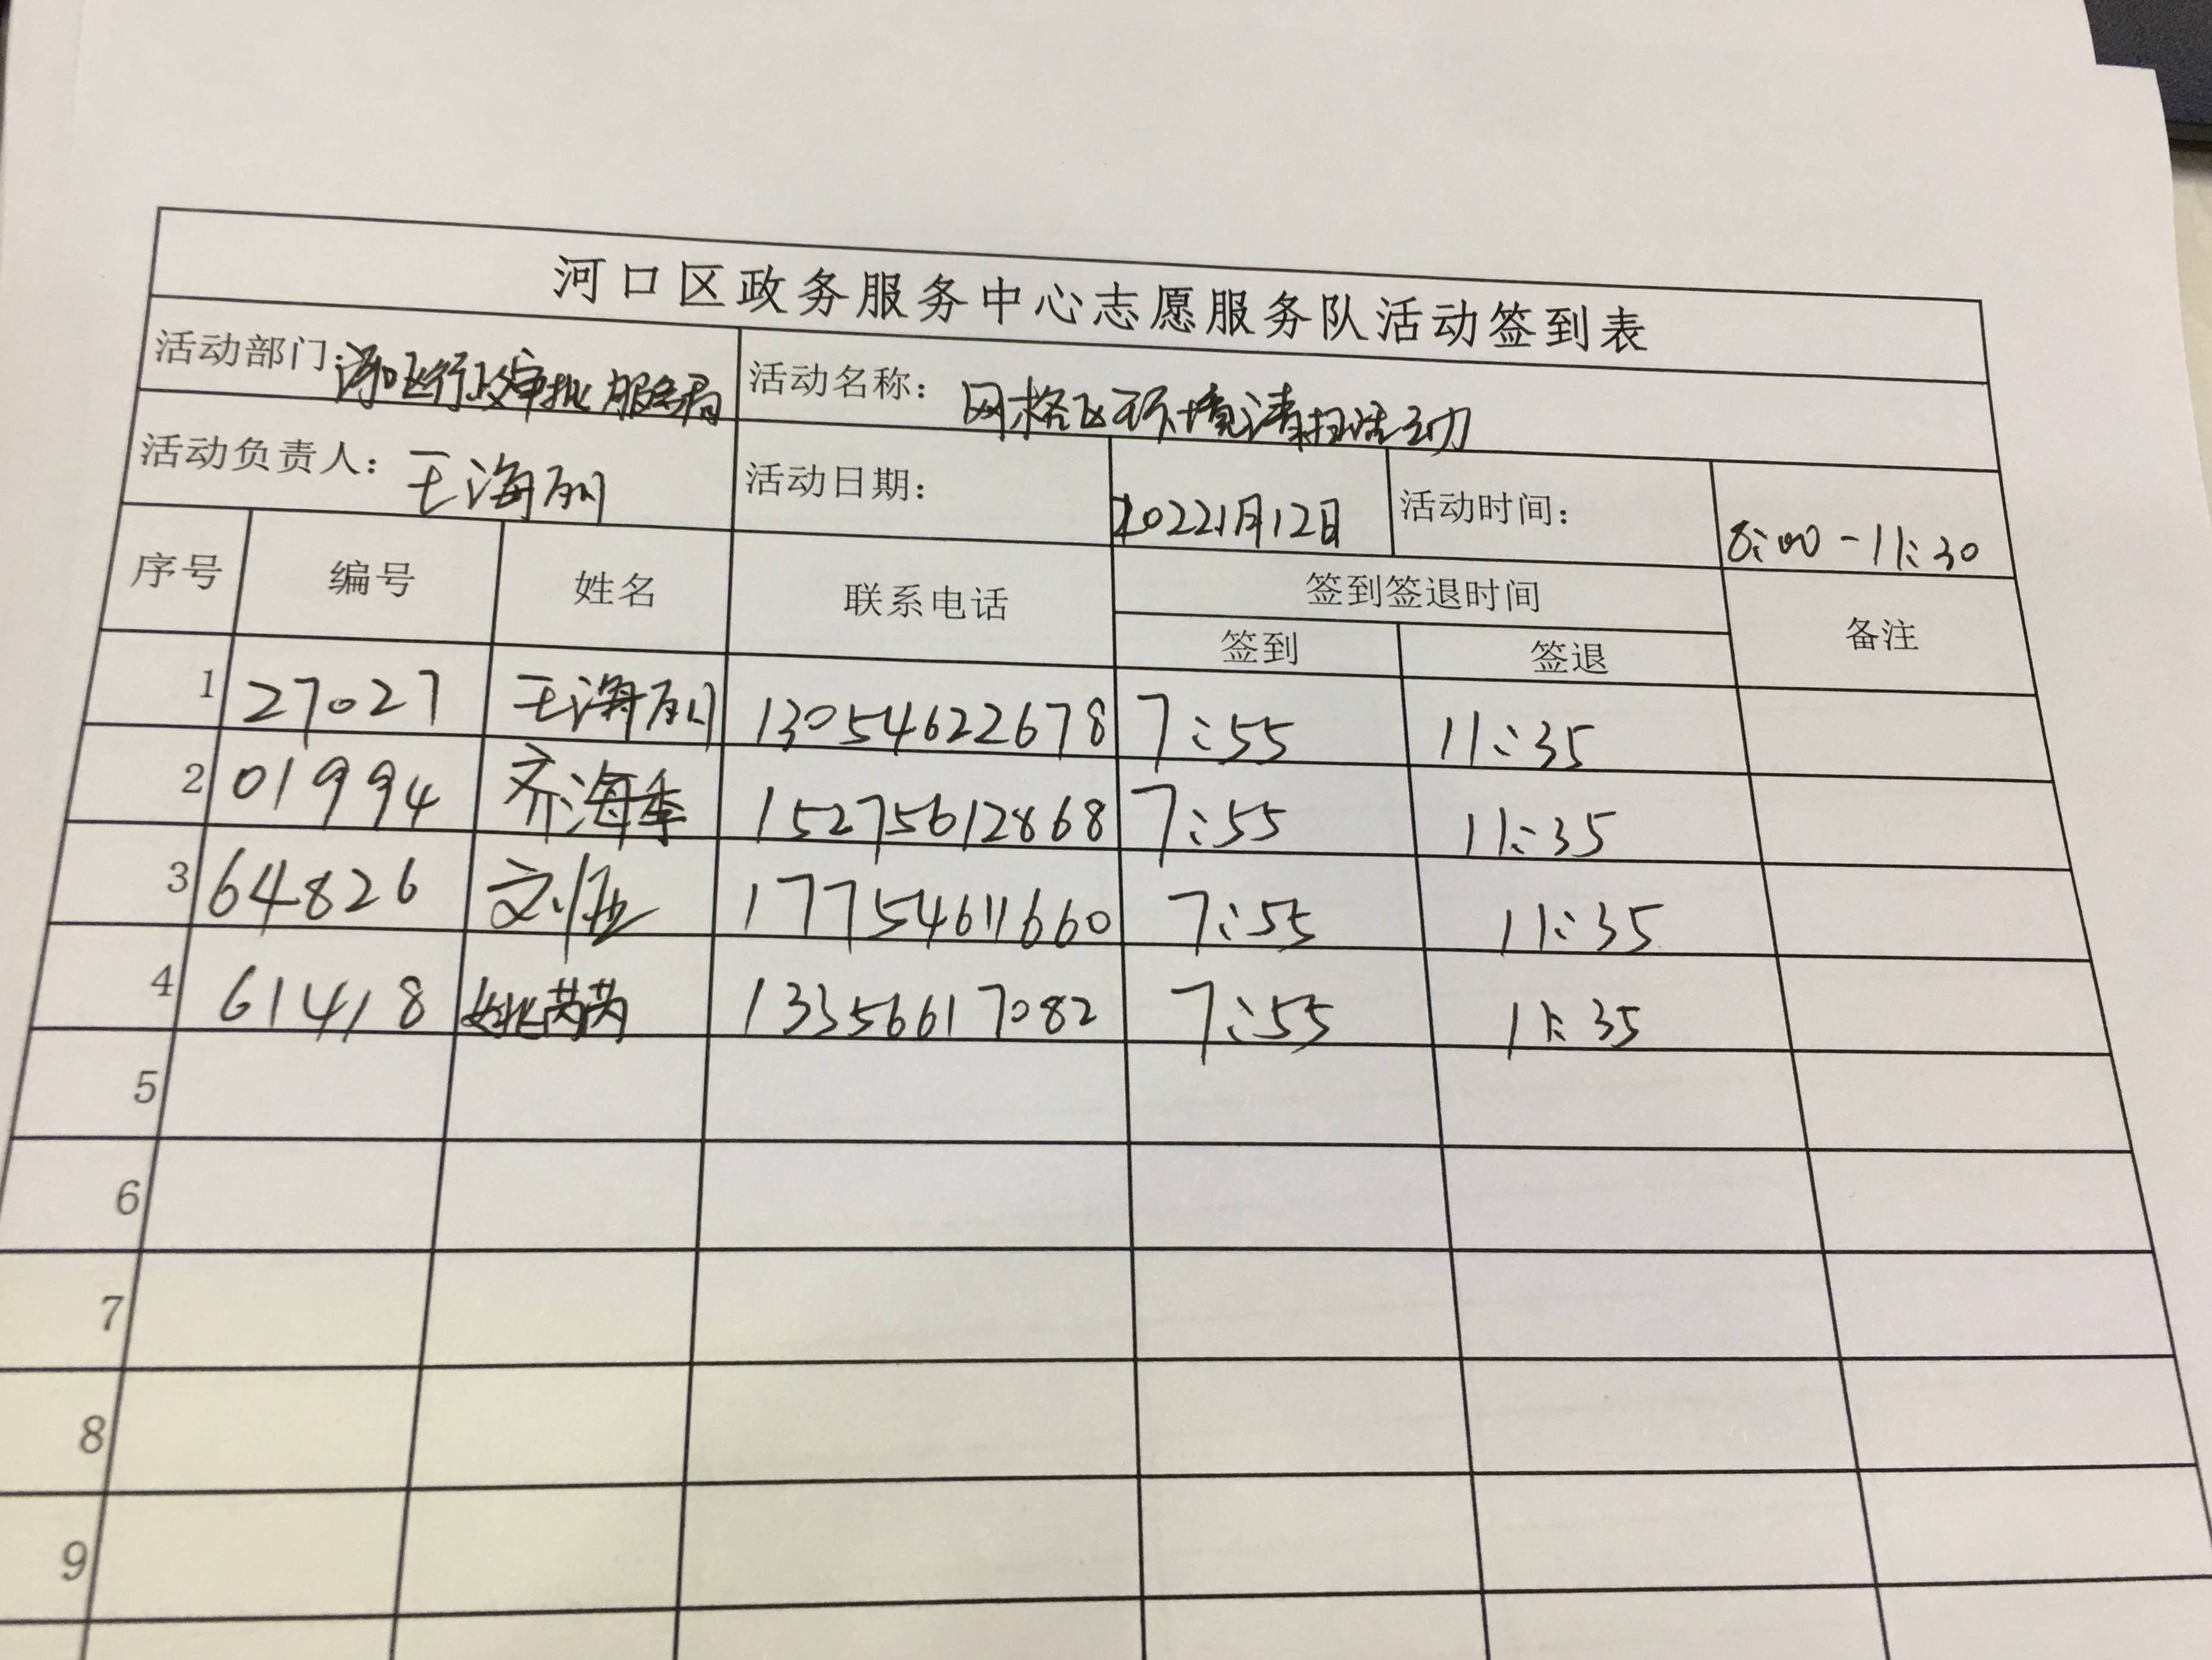 河口区政务服务中心志愿服务队活动签到表
活动部门：河口区行政审批服务局 活动名称： 网格区环境清扫活动
活动负责人：王海丽 活动日期： 2022.1月12日 活动时间： 8:00-11:30
序号 编号 姓名 联系电话 签到签退时间 备注
签到 签退
1 27027 王海丽 13054622678 7:55 11:35
2 01994 齐海季 15275612868 7:55 11:35
3 64826 17754611660 7:55 11:35
4 61418 姚芮芮 13356617082 7:55 11:35
5
6
7
8
9